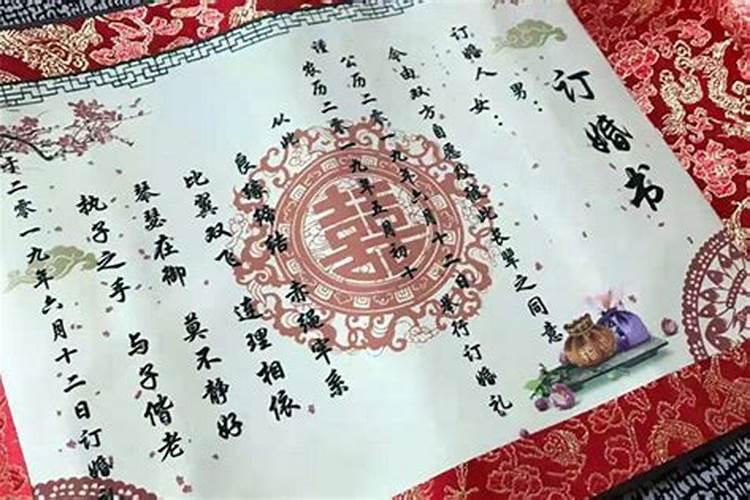 订婚书
男：
订婚人女：
今由双方自愿及此长辈之同意
公历二零一九年六月十二日举行订婚礼
谨农历二零一九年五月初十
从此
良缘缔结 赤绳牢系
比翼双飞 连理相依
琴瑟在御 莫不静好
执子之手 与子偕老
于二零一九年六月十二日订婚